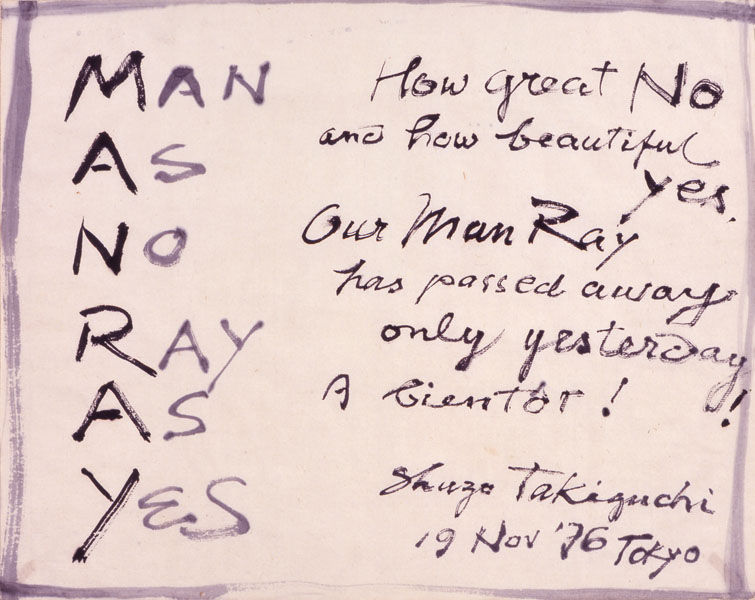 MAN
AS
NO
RAY
AS
YES
How great No
and how beautiful
yes.
Our Man Ray
has passed away
only yesterday
!
A bientôt !
Shuzo Takiguchi
19 Nov '76 Tokyo